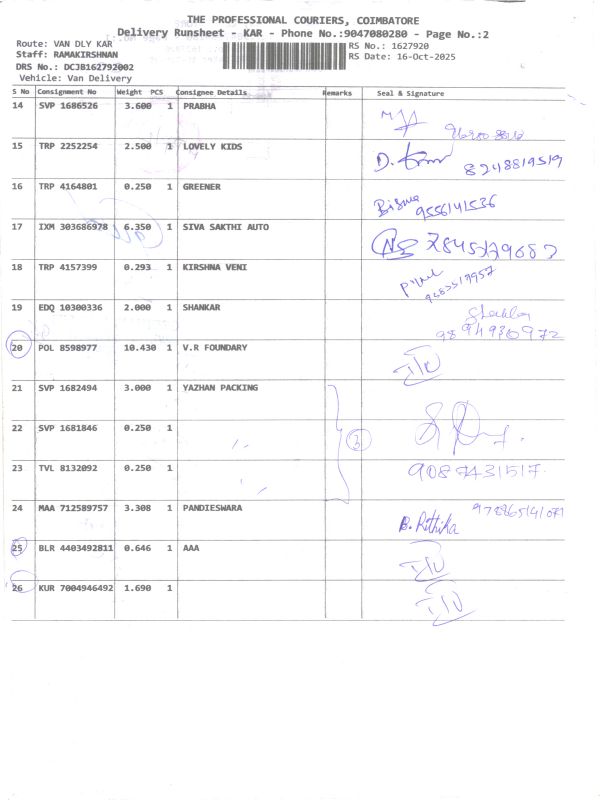 THE PROFESSIONAL COURIERS, COIMBATORE
Delivery Runsheet - KAR - Phone No.:9047080280 - Page No.:2
Route: VAN DLY KAR
RS No.: 1627920
Staff: RAMAKIRSHNAN
RS Date: 16-Oct-2025
DRS No.: DCJB162792002
Vehicle: Van Delivery
S No Consignment No Weight PCS Consignee Details Remarks Seal & Signature
14 SVP 1686526 3.600 1 PRABHA
15 TRP 2252254 2.500 1 LOVELY KIDS 8248819519
16 TRP 4164801 0.250 1 GREENER 9556141536
17 IXM 303686978 6.350 1 SIVA SAKTHI AUTO
18 TRP 4157399 0.293 1 KIRSHNA VENI
19 EDQ 10300336 2.000 1 SHANKAR 9894930972
20 POL 8598977 10.430 1 V.R FOUNDARY
21 SVP 1682494 3.000 1 YAZHAN PACKING
22 SVP 1681846 0.250 1 3
23 TVL 8132092 0.250 1 9087431517.
24 MAA 712589757 3.308 1 PANDIESWARA B. Rithika
25 BLR 4403492811 0.646 1 AAA
26 KUR 7004946492 1.690 1